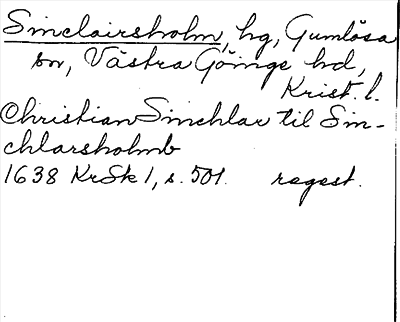 Sinclairsholm, hg, Gumlösa
sn, Västra Göinge hd,
Krist. l.
Christian Sinchlar til Sin-
chlarsholmb
1638 KrSk 1, s. 501. regest.